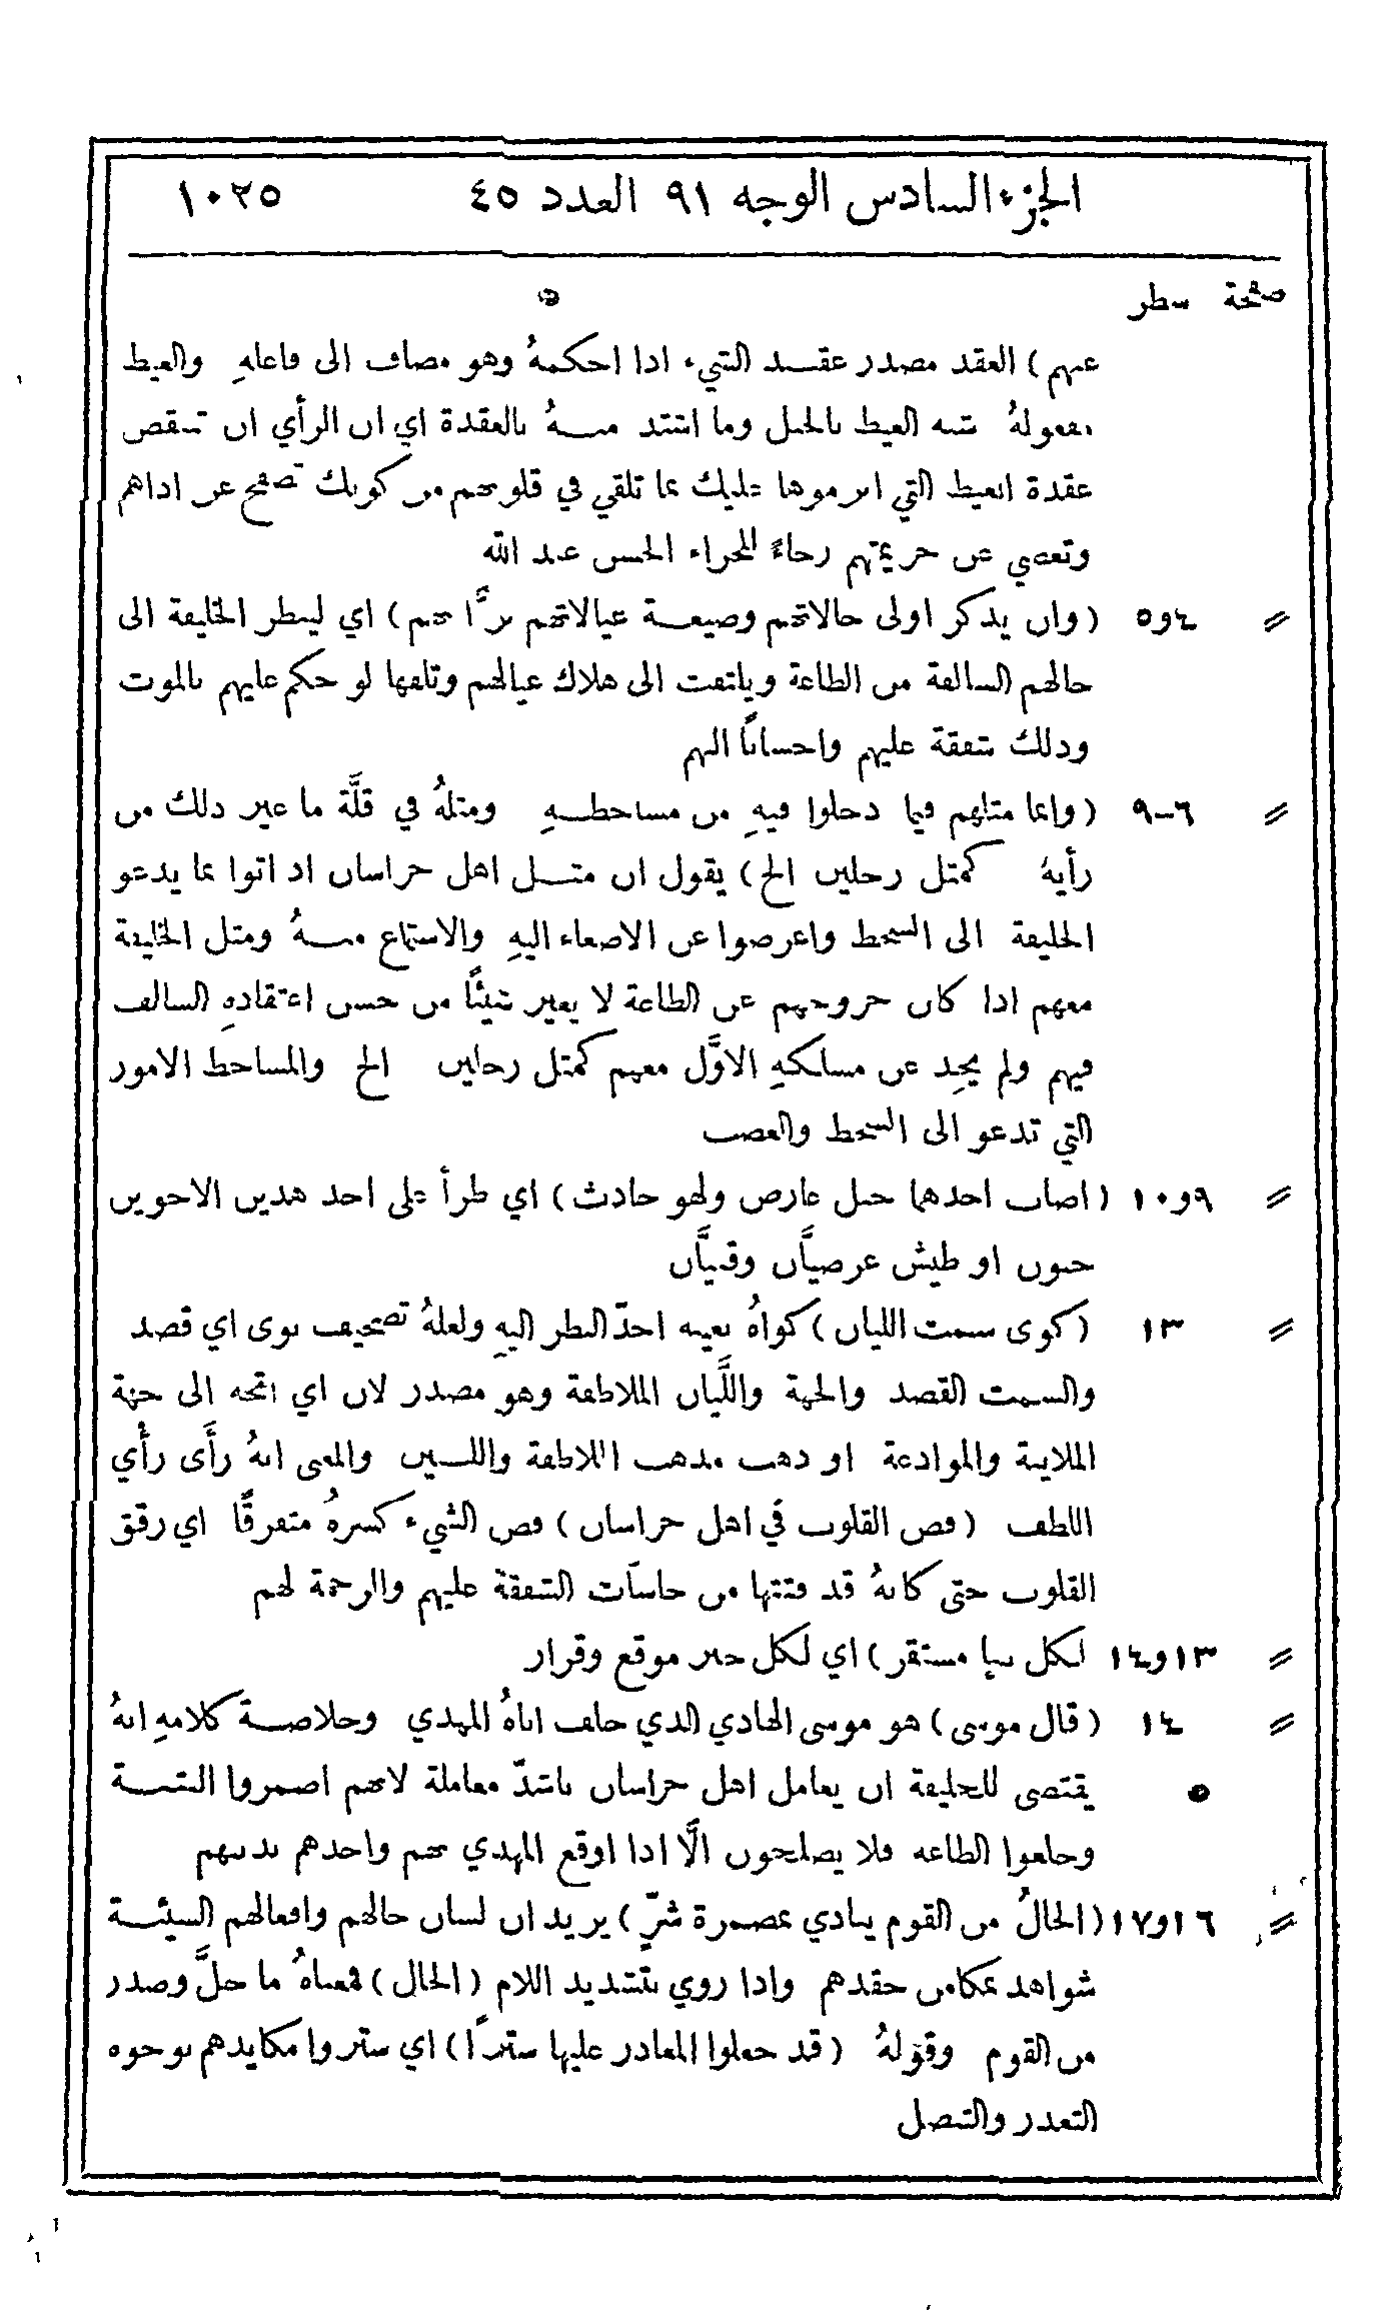 الجزء السادس الوجه ٩١ العدد ٤٥ ١٠٢٥
صفحة سطر
عنهم) العقد مصدر عقد الشيء اذا احكمهُ وهو مضاف الى فاعلهِ والغيظ
مفعولهُ شبه الغيظ بالحبل وما اشتد منهُ بالعقدة اي ان الرأي ان تنقض
عقدة الغيظ التي ابرموها عليك بما تلقي في قلوبهم من كونك تصفح عن اذاهم
وتغضي عن جريمتهم رجاءً للجزاء الحسن عند الله
〃 ٤و٥ (وان يذكر اولى حالاتهم وضيعة عيالاتهم برًّا بهم) اي لينظر الخليفة الى
حالهم السالفة من الطاعة ويلتفت الى هلاك عيالهم وتلفها لو حكم عليهم بالموت
وذلك شفقة عليهم واحسانًا اليهم
〃 ٦-٩ (وانما مثلهم فيما دخلوا فيهِ من مساخطهِ ومثلهُ في قلَّة ما غير ذلك من
رأيهُ كمثل رجلين الخ) يقول ان مثل اهل خراسان اذ اتوا بما يدعو
الخليفة الى السخط واعرضوا عن الاصغاء اليهِ والاستماع منهُ ومثل الخليفة
معهم اذا كان خروجهم عن الطاعة لا يغير شيئًا من حسن اعتقادهِ السالف
فيهم ولم يحِد عن مسلكهِ الاوَّل معهم كمثل رجلين الخ والمساخط الامور
التي تدعو الى السخط والغضب
〃 ٩و١٠ (اصاب احدهما خبل عارض ولهو حادث) اي طرأ على احد هذين الاخوين
جنون او طيش عرضيَّان وقتيَّان
〃 ١٣ (كوى سمت الليان) كواهُ بعينه احدّ النظر اليهِ ولعلهُ تصحيف نوى اي قصد
والسمت القصد والجهة واللَّيان الملاطفة وهو مصدر لان اي اتجه الى جهة
الملاينة والموادعة او ذهب مذهب اللاطفة واللين والمعنى انهُ رأَى رأْي
اللطف (فض القلوب في اهل خراسان) فض الشيء كسرهُ متفرقًا اي رقق
القلوب حتى كانهُ قد فتتها من حاسَات الشفقة عليهم والرحمة لهم
〃 ١٣و١٤ لكل نبإ مستقر) اي لكل خبر موقع وقرار
〃 ١٤ (قال موسى) هو موسى الهادي الذي خلف اباهُ المهدي وخلاصة كلامهِ انهُ
يقتضي للخليفة ان يعامل اهل خراسان باشدّ معاملة لانهم اضمروا الفتنة
وخلعوا الطاعه فلا يصلحون الَّا اذا اوقع المهدي بهم واخذهم بذنبهم
〃 ١٦و١٧ (الحالُ من القوم ينادي بمضمرة شرّ) يريد ان لسان حالهم وافعالهم السيئة
شواهد بمكامن حقدهم واذا روي بتشديد اللام (الحال) فمعناهُ ما حلَّ وصدر
من القوم وقولهُ (قد جعلوا المعاذر عليها سترًا) اي ستروا مكايدهم بوجوه
التعذر والتنصل